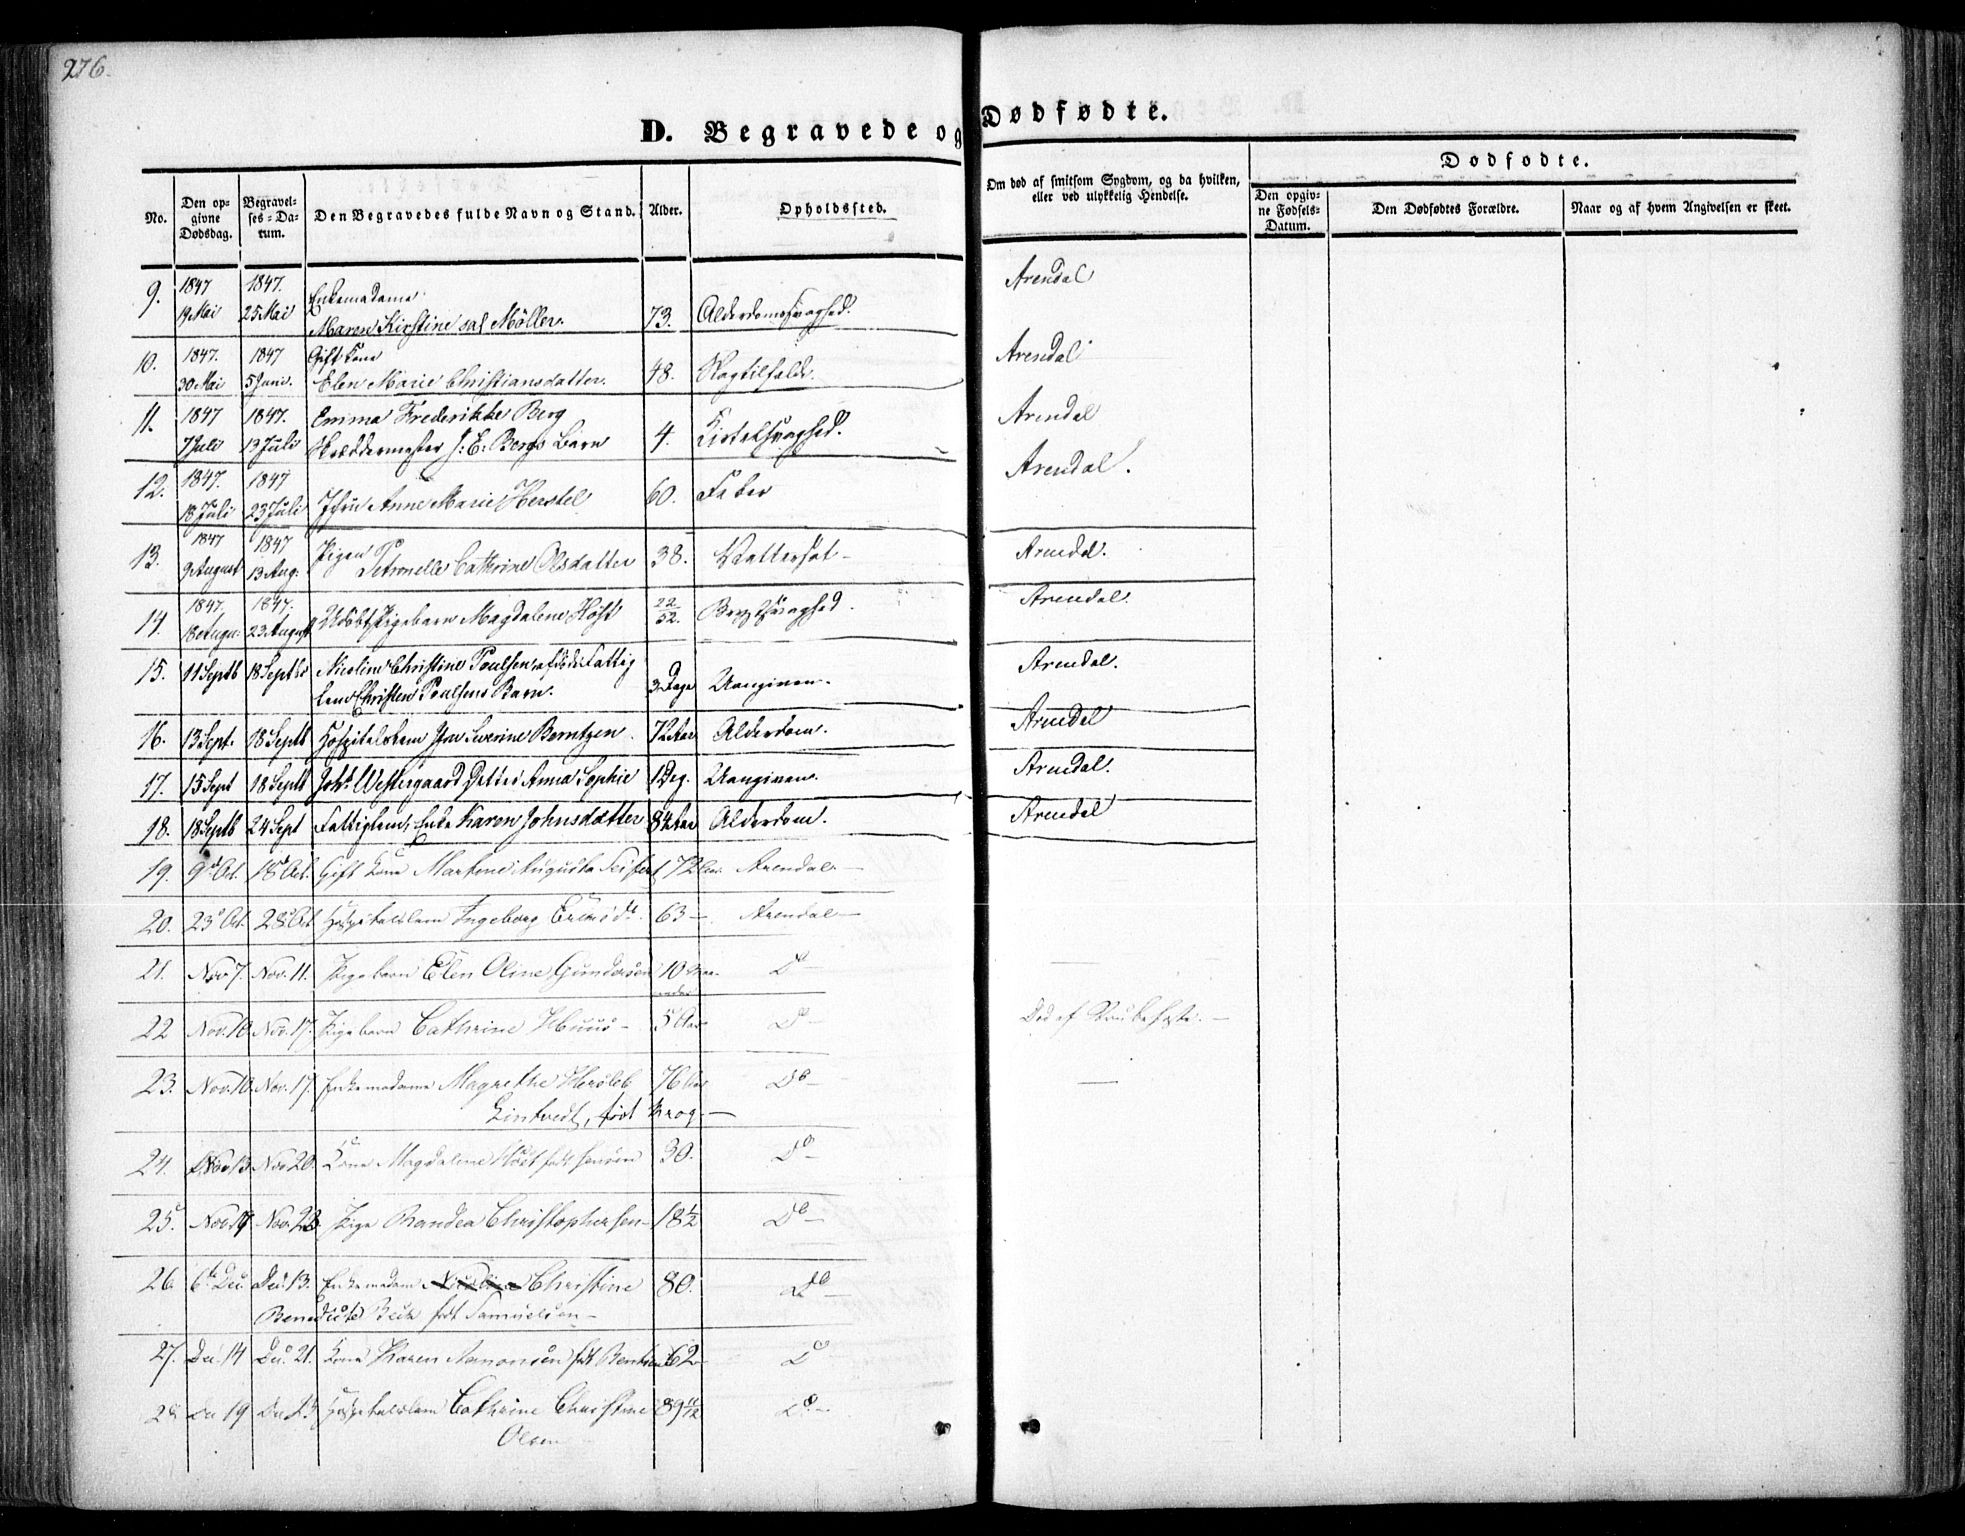 276.
D. Begravede og Dødfødte.
No.
Den opgivne Dødsdag.
Begravelses-Datum.
Den Begravedes fulde Navn og Stand.
Alder.
Opholdssted.
Om død af smitsom Sygdom, og da hvilken, eller ved ulykkelig Hendelse.
Dødfødte.
Den opgivne Fødsels-Datum.
Den Dødfødtes Forældre.
Naar og af hvem Angivelsen er skeet.
9. 1847 19 Mai 1847. 25 Mai Enkemadame Maren Kirstine sal Möller. 73. Alderdomssvaghed. Arendal
10. 1847. 30 Mai 1847 5 Juni. Gift Kone Elen Marie Christiansdatter. 48. Slagtilfælde. Arendal
11. 1847 7 Juli 1847. 13 Juli Emma Frederikke Berg Skræddermester J: E: Bergs Barn 4. Kirtelsvaghed. Arendal
12. 1847. 18 Juli 1847 23 Juli Jfru Anne Marie Herstel 60. Feber Arendal.
13. 1847 9 August 1847 13 Aug: Pigen Petronelle Cathrine Olsdatter 38. Vattersot - Arendal.
14. 1847. 18 Augu: 1847. 23 August Udöbt Pigebarn Magdalene Höst 22/52. Brystsvaghed. Arendal.
15. 11 Septb 18 Septb Nicoline Christine Poulsen, afdöde Fattiglem Christen Poulsens Barn. 3 Dage Uangiven. Arendal.
16. 13 Sept. 18 Septb Hospitalslem Jfru Severine Berntzen. 72 Aar Alderdom. Arendal
17. 15 Sept 18 Septb Johs. Westergaard Datter Anna Sophie 1 Dag. Uangiven. Arendal.
18. 18 Septb 24 Sept Fattiglem, Enke Karen Johnsdatter 84 Aar Alderdom. Arendal
19. 9d Oct. 18d Oct. Gift Kone Martine Augusta 72 Aar Arendal. —
20. 23d Oct. 28d Oct Hospitalslem Ingeborg 63 —. Arendal —
21. Nov 7. Nov. 11. Pigebarn Elen Oline Gundersen 10 Maaneder Do —
22 Nov. 10 Nov. 17. Pigebarn Cathrine Huus - 5 Aar Do — Död af Strubehoste. —
23. Nov. 10. Nov. 17. Enkemadame Magrethe Hersleb 76 Aar Do — —
Lintvedt, födt Krog. —
24. Nov 13 Nov 20. Kone Magdalene Höst födt Jensen 30. Do —
25. Nov 17 Nov. 23. Pige Randea Christophersen 18 1/2 Do —
26. 6te Dec. Dec. 13. Enkemadam Christine 80. Do —
Benedicte Beck födt Samuelsen —
27. Dec. 14 Dec. 21. Kone Karen Aanonsen födt Bentsen 62 Do
28 Dec 19 Dec 24 Hospitalslem Cathrine Christine 89 11/12 Do. —
Olsen